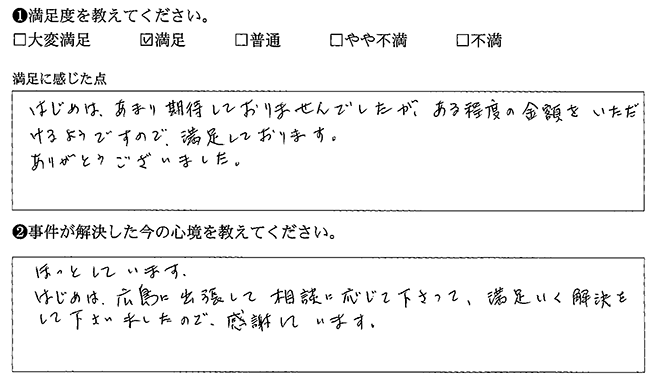 ❶満足度を教えてください。
□大変満足 ☑満足 □普通 □やや不満 □不満
満足に感じた点
はじめは、あまり期待しておりませんでしたが、ある程度の金額をいただ
けるようですので、満足しております。
ありがとうございました。
❷事件が解決した今の心境を教えてください。
ほっとしています.
はじめは、広島に出張して相談に応じて下さって、満足いく解決を
して下さいましたので、感謝しています。